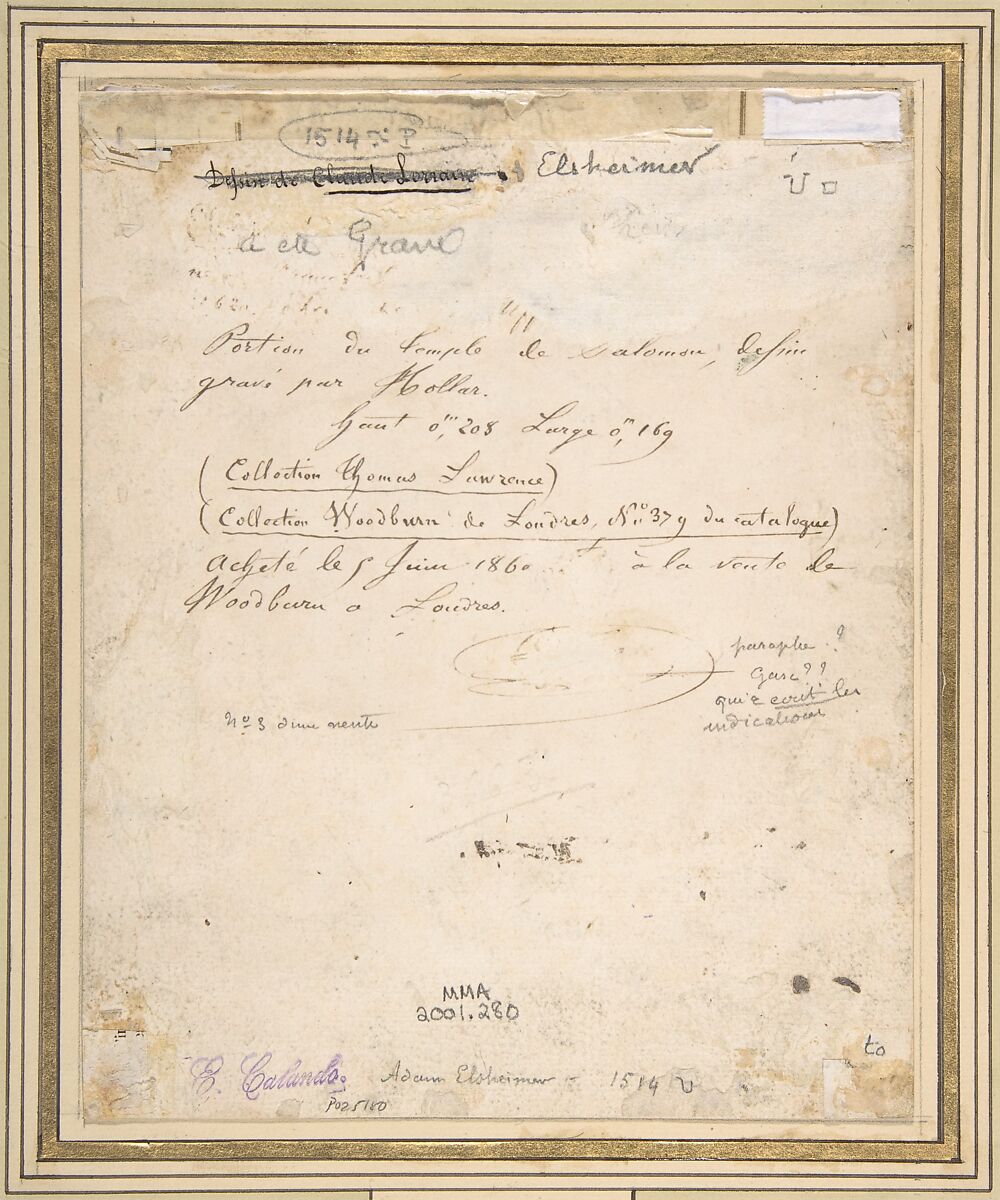 1514
Dessin de Claude Lorrain. Elsheimer
a été Gravé
Portion du temple de Salomon, dessin
gravé par Hollar.
haut 0m,208 Large 0m,169
(Collection Thomas Lawrence)
(Collection Woodburn de Londres, No 379 du catalogue)
Acheté le 5 Juin 1860 à la vente de
Woodburn a Londres.
paraphe ?
Gasc ??
qui a ecrit les
indications
no 3 d'une vente
MMA
2001.280
to
E. Calando. Adam Elsheimer - 1514
P025180